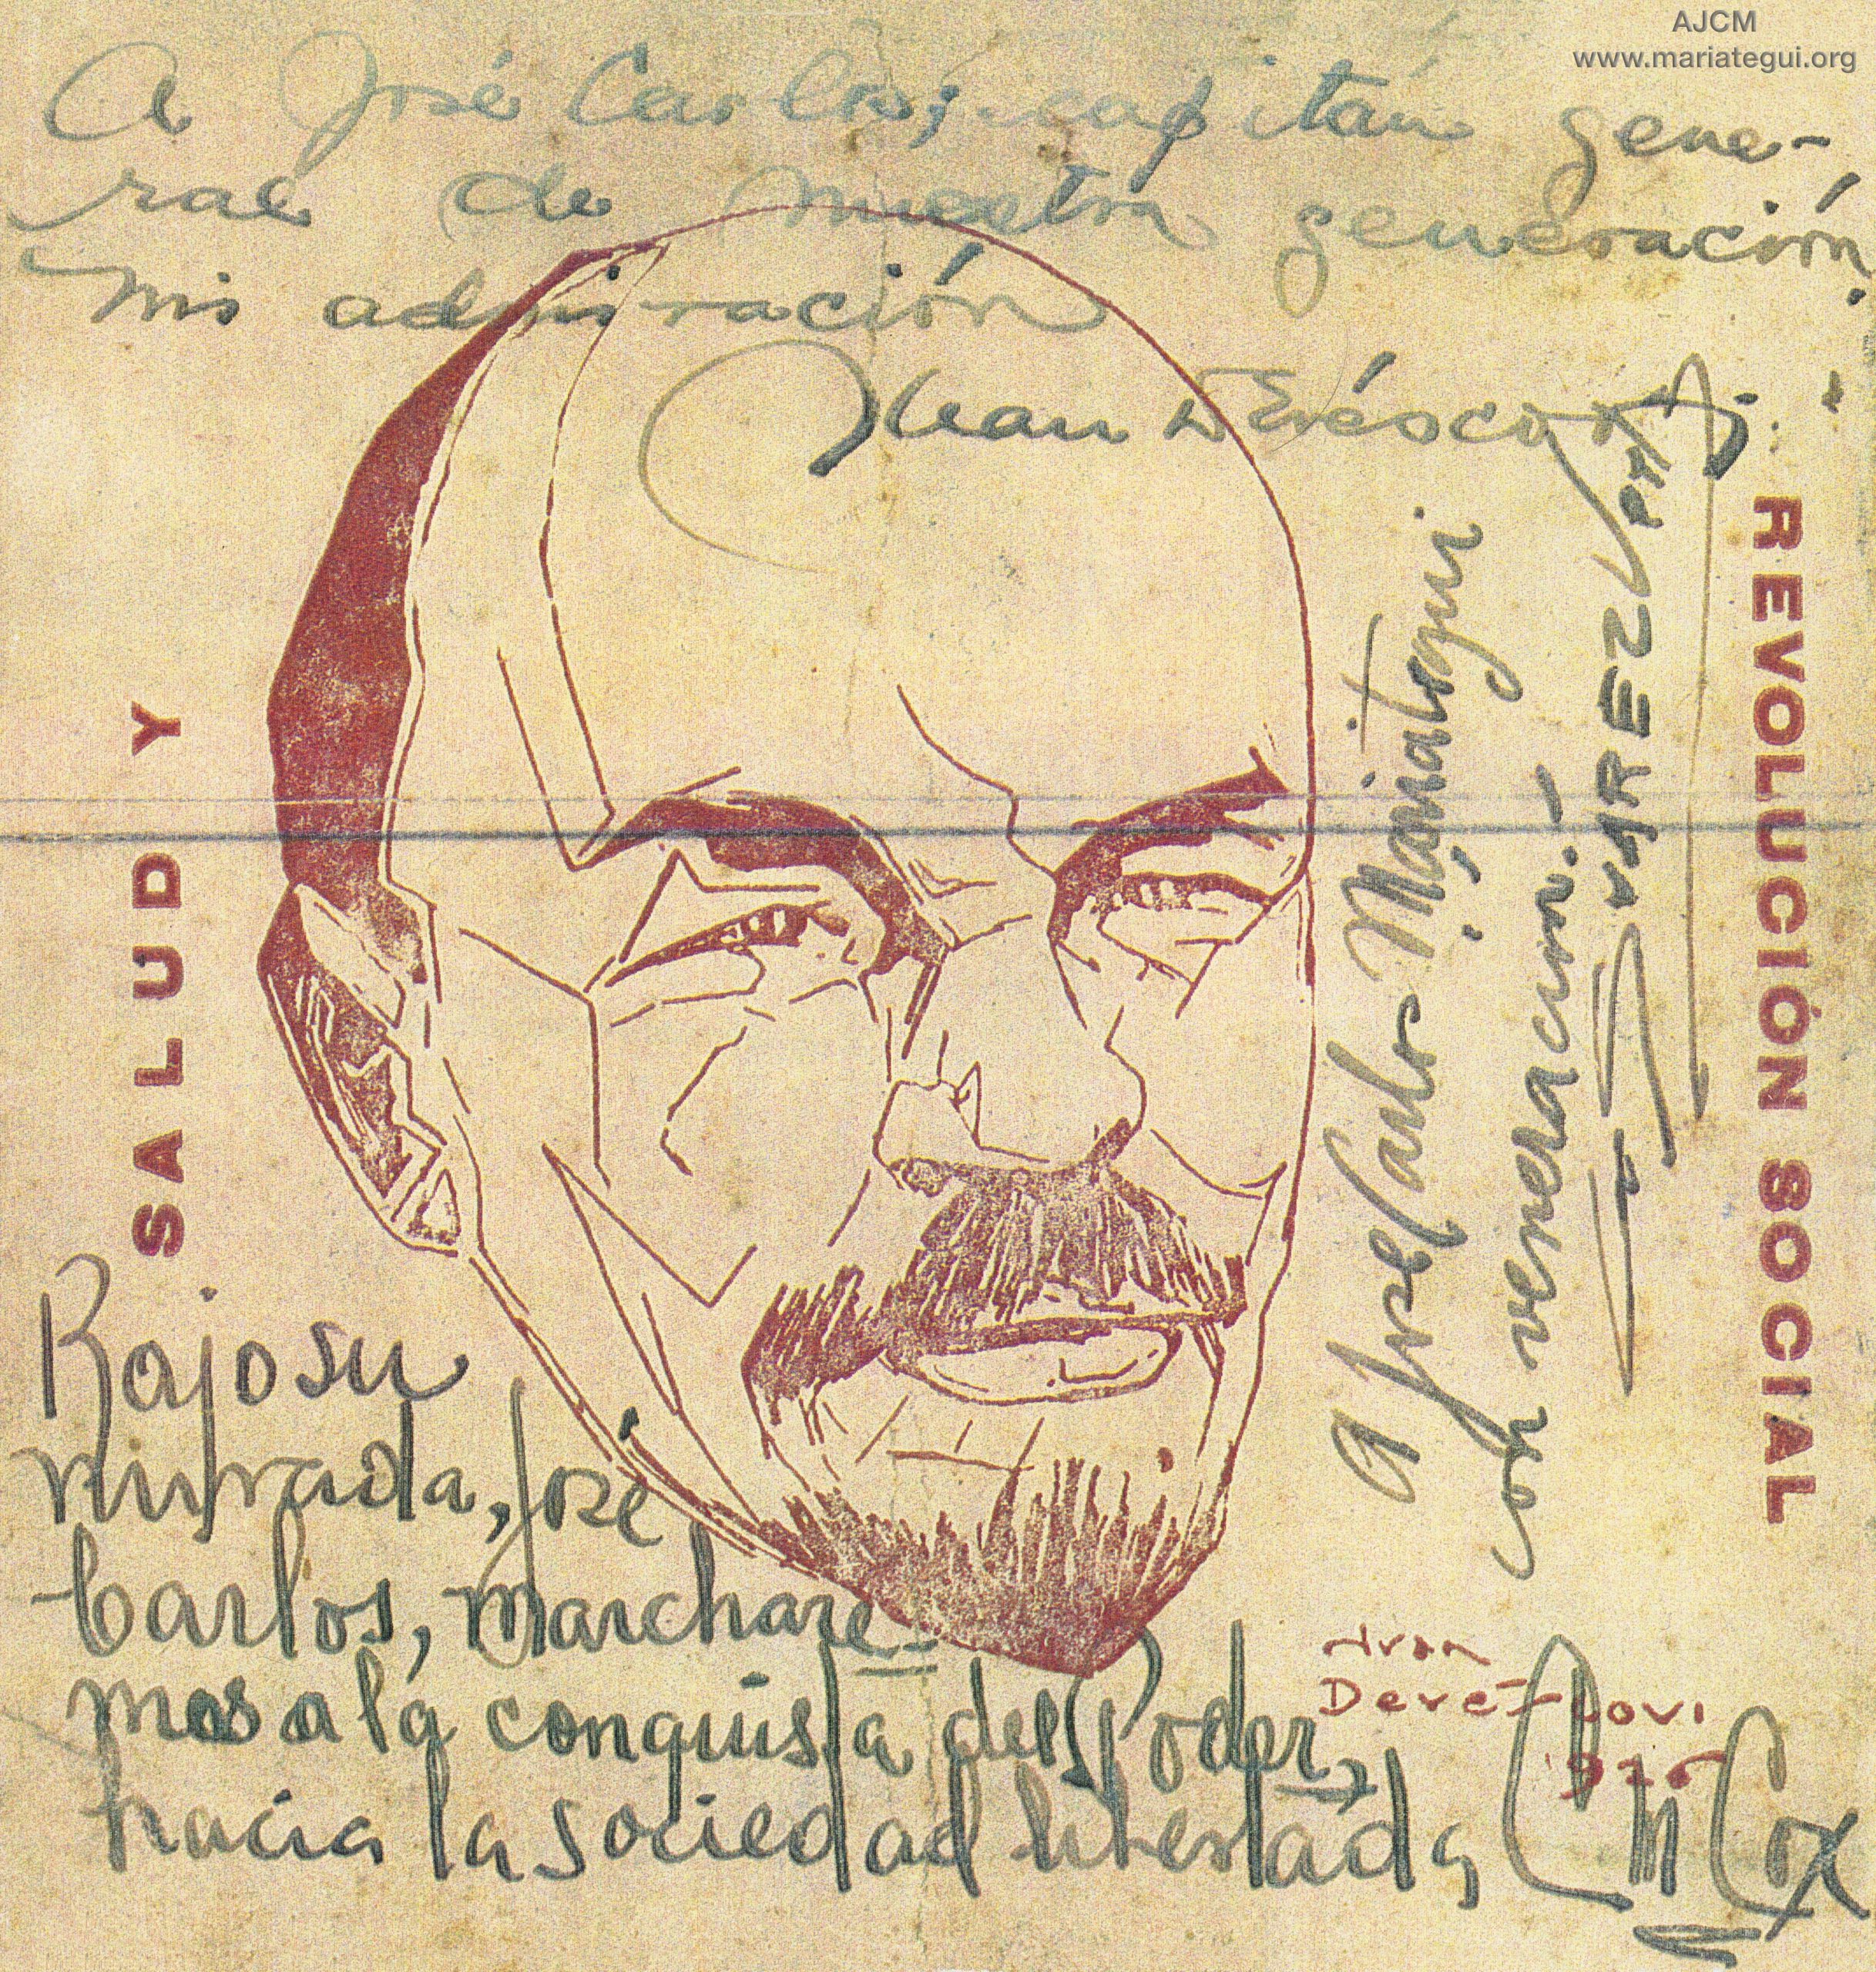 AJCM
www.mariategui.org
A José Carlos, capitán gene-
ral de nuestra generación
mi admiración
Juan
SALUD Y
REVOLUCIÓN SOCIAL
A José Carlos Mariategui
con veneración.
Bajo su
mirada, José
Carlos, marchare-
mos a la conquista del Poder,
hacia la sociedad libertada,
Cox